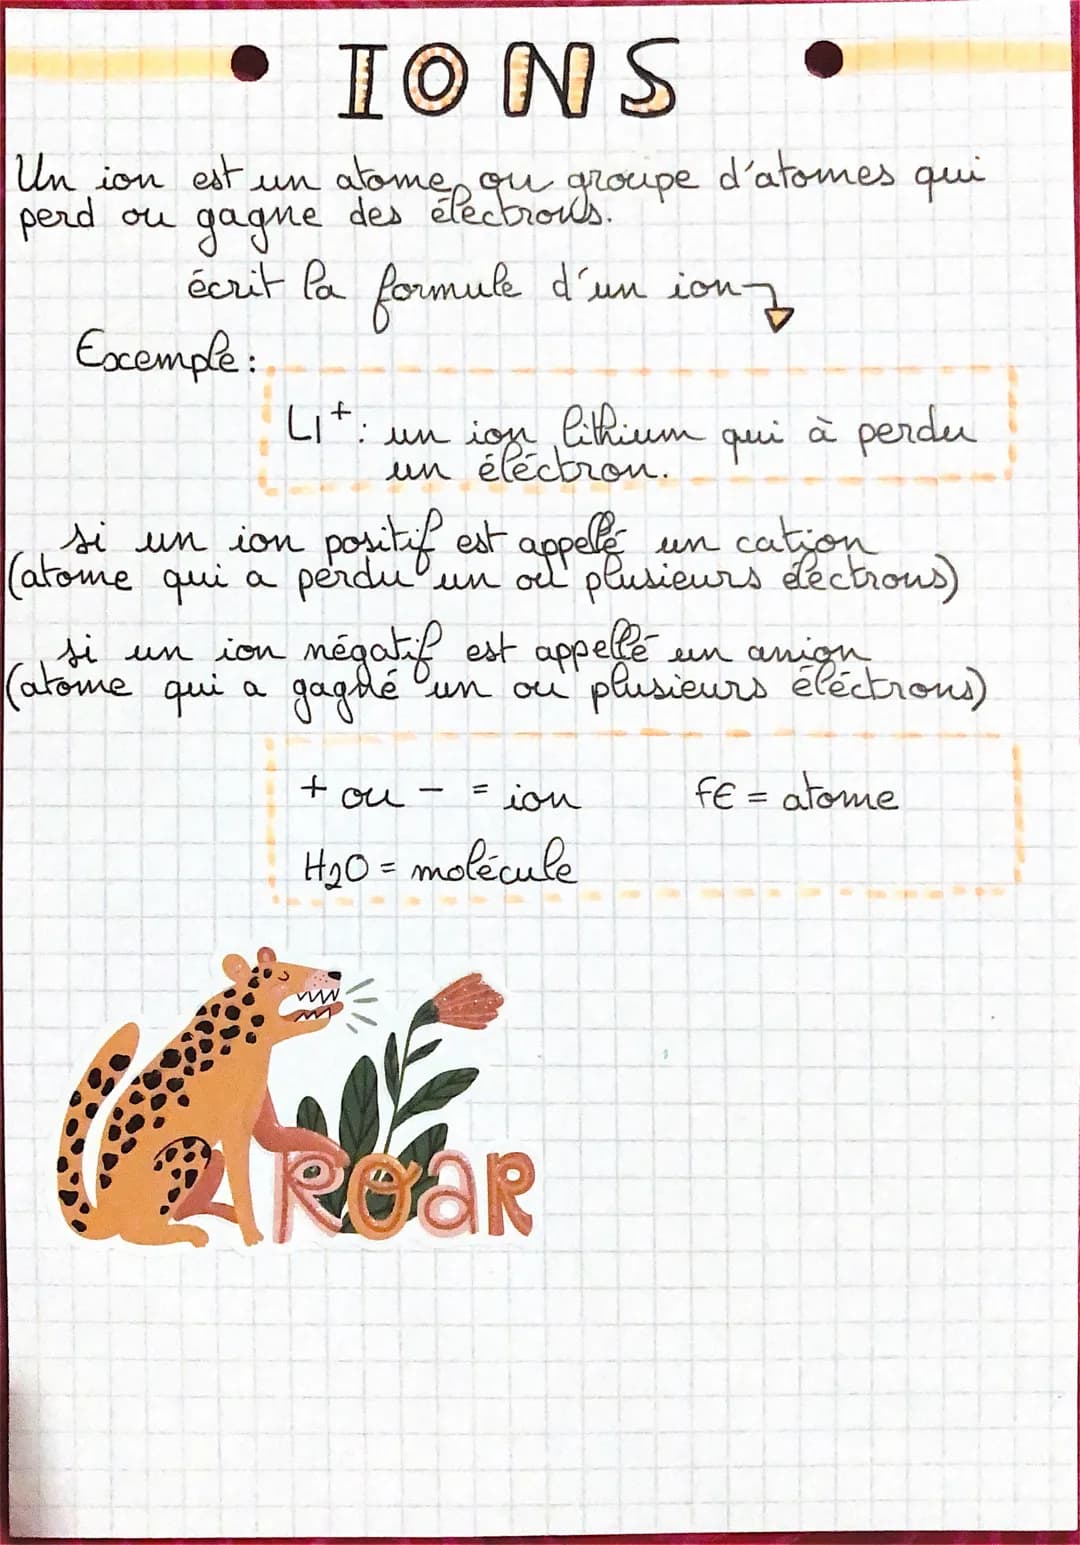 IONS
Un ion est un atome ou groupe d'atomes qui
perd ou gagne des électrons.
écrit la formule d'un ion
Exemple:
LI⁺: un ion lithium qui à perdu
un éléctron.
si un ion positif est appellé un cation
(atome qui a perdu un ou plusieurs électrons)
si un ion négatif est appellé un anion
(atome qui a gagné un ou plusieurs éléctrons)
+ ou - = ion fe = atome
H2O = molécule
ROAR